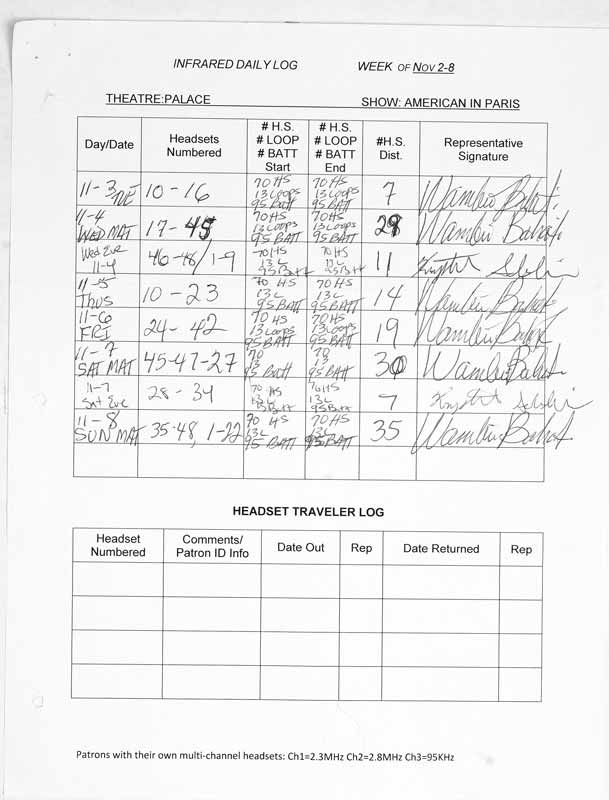 INFRARED DAILY LOG WEEK OF NOV 2-8
THEATRE:PALACE SHOW: AMERICAN IN PARIS
Day/Date Headsets Numbered # H.S. # LOOP # BATT Start # H.S. # LOOP # BATT End #H.S. Dist. Representative Signature
11-3 TUE 10-16 70 HS 13 Loops 95 Batt 70 HS 13 Loops 95 BATT 7
11-4 WED MAT 17-45 70 HS 13 Loops 95 BATT 70 HS 13 Loops 95 BATT 29
Wed Eve 11-4 46-48/1-9 70 HS 13 L 95 Batt 70 HS 13 L 95 Batt 11
11-5 Thus 10-23 70 HS 13 L 95 BATT 70 HS 13 L 95 BATT 14
11-6 FRI 24-42 70 HS 13 Loops 95 BATT 70 HS 13 Loops 95 BATT 19
11-7 SAT MAT 45-47-27 70 13 L 95 BATT 70 13 L 95 BATT 30
11-7 Sat Eve 28-34 70 HS 13 L 95 Batt 70 HS 13 L 95 Batt 7
11-8 SUN MAT 35-48, 1-22 70 HS 13 L 95 BATT 70 HS 13 L 95 BATT 35
HEADSET TRAVELER LOG
Headset Numbered Comments/ Patron ID Info Date Out Rep Date Returned Rep
Patrons with their own multi-channel headsets: Ch1=2.3MHz Ch2=2.8MHz Ch3=95KHz